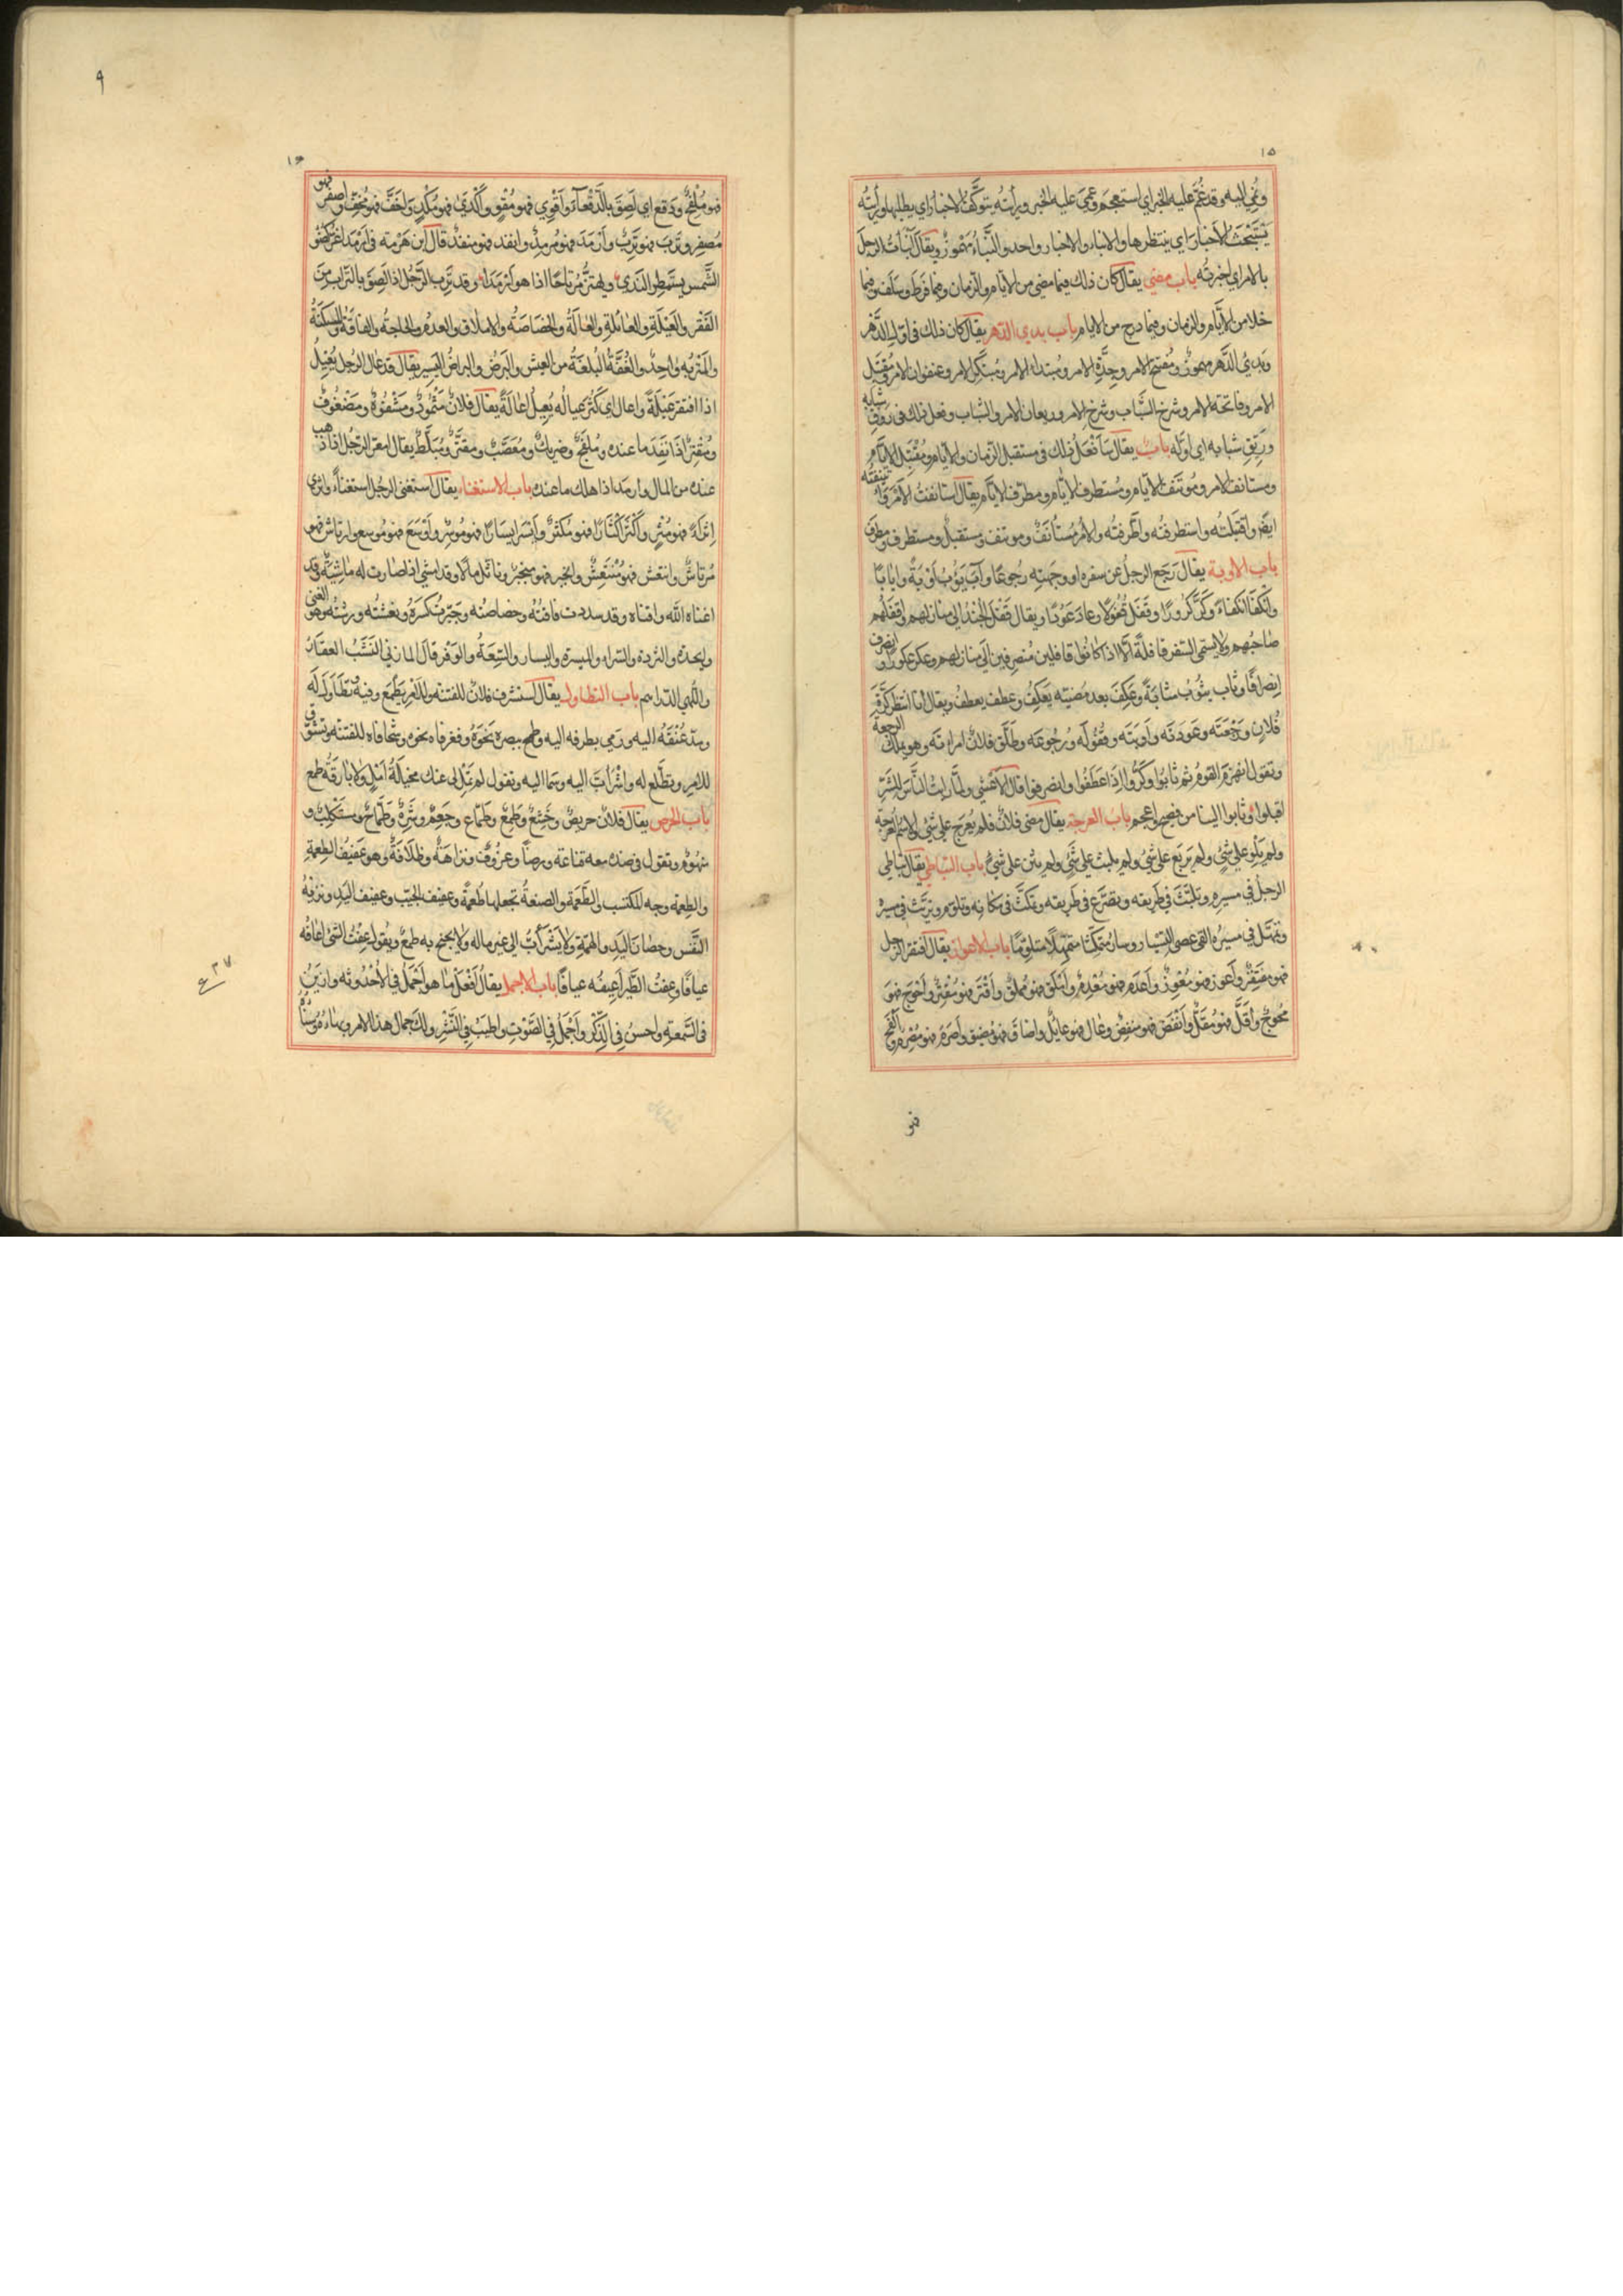 ١٥
ونُمِيَ اليه وقد غُمَّ عليه الخبر اي استعجم وعمي عليه الخبر ورايته يتوكّف الاخبار اي يطلبها ورأيته
يتبحّث الاخبار اي ينتظرها والانباء والاخبار واحد والنّباء مهموز ويقال انبأت الرجل
بالامر اي اخبرته باب مضى يقال كان ذلك فيما مضى من الايّام والزمان وفيما فرط وسلف وفيما
خلا من الايّام والزمان وفيما درج من الايام باب بدي الدهر يقال كان ذلك في اوّل الدّهر
وبديّ الدّهر مهموز ومفتتح الامر وجدّة الامر ومبتداء الامر ومبتكر الامر وعنفوان الامر ومقتبل
الامر وفاتحة الامر وشرخ الشّباب وشرخ الامر وريعان الامر والشباب وفعل ذلك في روق شبابه
وريّق شبابه اي اوّله باب يقال سأفعل ذلك في مستقبل الزمان والايّام ومقتبل الايّام
ومستانف الامر وموتنف الايّام ومستطرف الايّام ومطرّف الايّام يقال استانفت الامر
ايضا واقتبلته واستطرفته واطّرفته والامر مستأنف وموتنف ومستقبل ومستطرف ومطرف
باب الاوبة يقال رجع الرجل عن سفره او وجهته رجوعا وآب يؤب اوبة وايابا
وانكفأ انكفاء وكرّ كرورا وقفل قفولا وعاد عودا ويقال قفل الجند الى منازلهم واقفلهم
صاحبهم ولا يسمّى السفر قافلة الّا اذا كانوا قافلين منصرفين الى منازلهم وعكر عكورا وانصرف
انصرافا وثاب يثوب مثابة وعكف بعد مضيّه يعكف وعطف يعطف ويقال انا انتظر كرّة
فلان ورجعته وعودته واوبته وقفوله ورجوعه وطلّق فلان امراته وهو يملك الرجعة
وتقول انهزم القوم ثم ثابوا وكرّوا اذا عطفوا وانصرفوا قال الاعشى ولمّا رايت الناس للشرّ
اقبلوا وثابوا الينا من فصيح واعجم باب العرجة يقال مضى فلان فلم يعرج على شئ والاسم العرجة
ولم يلو على شئ ولم يربع على شئ ولم يلبث على شئ ولم يثن على شئ باب التباطي يقال تباطى
الرجل في مسيره وتلبّث في طريقه وتضرّع في طريقه وتمكّث في مكانه وتلوّم وتربّث في سيره
وتمهّل في مسيره القى عصى التسيار وسار متمكّثا متمهّلا متلوّما باب الاعواز يقال افتقر الرجل
فهو مفتقر واعوز فهو معوز واعدم فهو معدم واملق فهو مملق واقتر فهو مقتر واحوج فهو
محوج واقلّ فهو مقلّ وانفض فهو منفض وعال فهو عايل واضاق فهو مضيق واصرم فهو مصرم والفج
فهو
٩
١٦
فهو ملفج ودقع اي لصق بالدّقعآء واقوى فهو مقو واكدى فهو مكد واخفّ فهو مخفّ واصفر فهو
مصفر وترب فهو ترب وارمد فهو مرمد وانفد فهو منفد قال ابن هرمة في ارمد اغرّ كضوء
الشّمس يستمطر الندى ويهتزّ مرتاحا اذا هو ارمدا وقد ترب الرّجل اذا لصق بالتراب من
الفقر والعيلة والعائلة والعالة والخصاصة والاملاق والعدم والحاجة والفاقة والمسكنة
والمتربة واحد والغفّة البلغة من العيش والبرض والبراض اليسير يقال قد عال الرجل يعيل
اذا افتقر عيلة واعال اي كثر عياله يعيل اعالة يقال فلان مثمود ومشفوه ومضفوف
ومقتر اذا نفد ما عنده وملفج وضريك ومعصّب ومقتر ومبلّط يقال امعر الرجل اذا ذهب
عنده من المال وارمد اذا هلك ما عنده باب الاستغناء يقال استغنى الرجل استغناء واثرى
اثراء فهو مثر واكثر اكثارا فهو مكثر وايسر ايسارا فهو موسر واوسع فهو موسع وارتاش فهو
مرتاش وانتعش فهو منتعش وانجبر فهو منجبر وتاثّل مالا وقد امشى اذا صارت له ماشية وقد
اغناه الله واقناه وقد سددت فاقته وخصاصته وجبرت كسره ونعشته ورشته وهو الغنى
والجدة والثروة والثراء والميسرة واليسار والسعة والوفر قال المازني النشب العقار
واللّهى الدراهم باب التطاول يقال استشرف فلان للفتنة وللامر يطمع وفيه تطاول له
ومدّ عنقه اليه ورمى بطرفه اليه وطمح ببصره نحوه وفغر فاه نحوه وشحا فاه للفتنة وتشوّق
للامر وتطلّع له واشرأبّ اليه وسما اليه وتقول لم تخل لي عنك مخيلة امل ولا بارقة طمع
باب الحرص يقال فلان حريص وجشع وطمع وطمّاع وجعم وشره وطمّاح ومستكلب و
منهوم وتقول في ضده معه قناعة ورضا وعزوف ونزاهة وظلافة وهو عفيف الطعمة
والطعمة وجه المكتسب والطّعمة والصنعة تجعلها طعمة وعفيف الجيب وعفيف اليد ونزيه
النّفس وحصان اليد والهمّة ولا يشرأبّ الى غير ماله ولا يجنح به طمع ويقول عفت الشئ اعافه
عيافا وعفت الطّير اعيفه عيافا باب الاجمل يقال افعل ما هو اجمل في الاحدوثة وازين
في السّمعة واحسن في الذّكر واجمل في الصّوت واطيب في النّشر ولك جمال هذا الامر وبهاءه وسناه
٣٧
ع